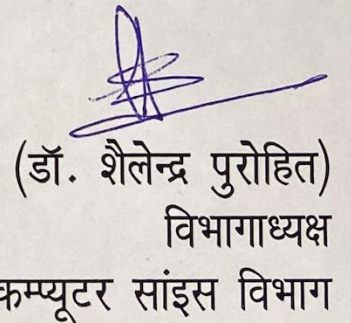 (डॉ. शैलेन्द्र पुरोहित)
विभागाध्यक्ष
कम्प्यूटर सांइस विभाग